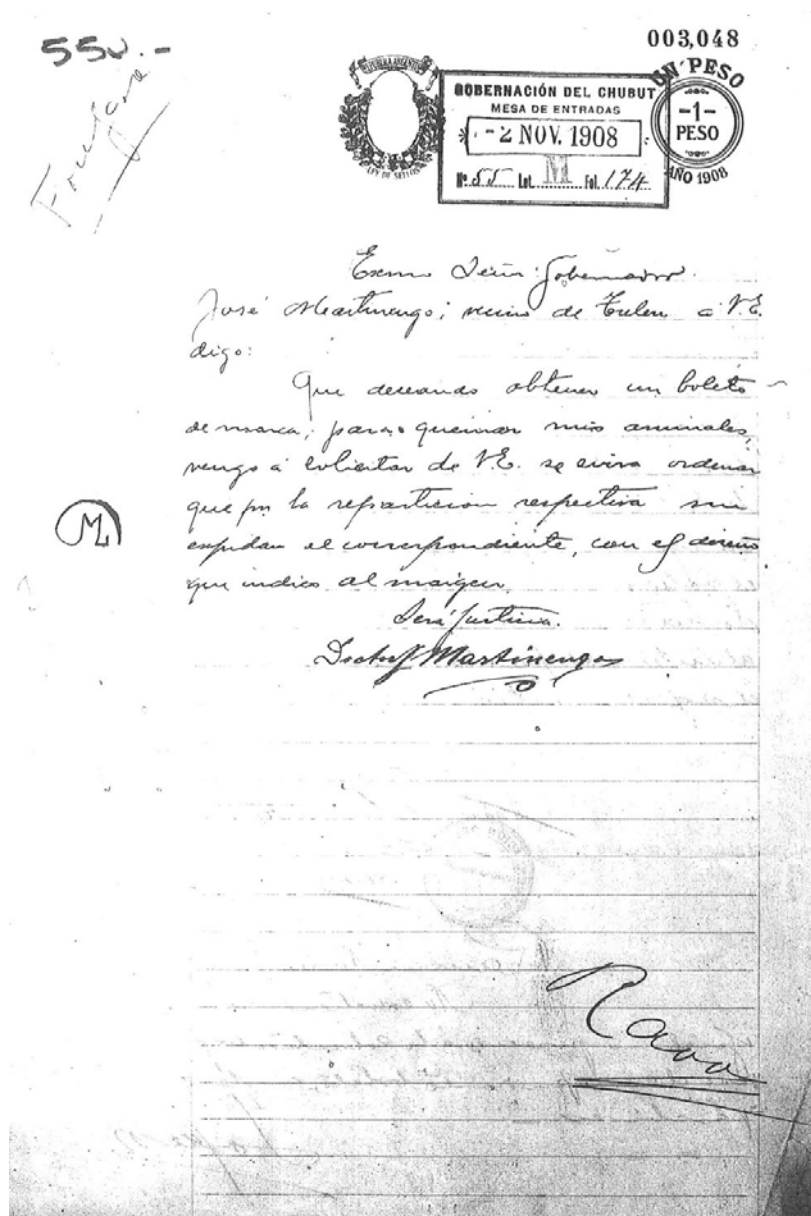 550.-
003,048
REPUBLICA ARGENTINA
LEY DE SELLOS
GOBERNACIÓN DEL CHUBUT
MESA DE ENTRADAS
-2 NOV. 1908
Nº 55 Let. M Fol. 174
UN PESO
-1-
PESO
AÑO 1908
Exmo Señor Gobernador
José Martinengo; vecino de a V.E.
digo:
Que deseando obtener un boleto
de marca, para quemar mis animales,
vengo á solicitar de V.E. se sirva ordenar
que por la reparticion respectiva me
expidan el correspondiente, con el diseño
que indico al margen.
M
Será Justicia.
Martinengo